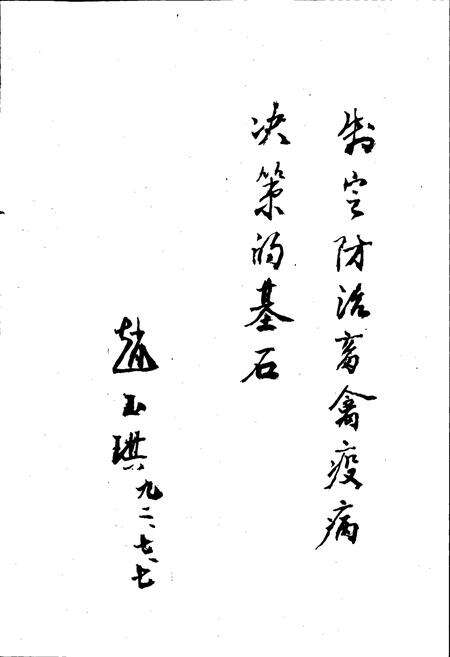 制定防治畜禽疫病
决策的基石
趙玉琪
九二、七、七